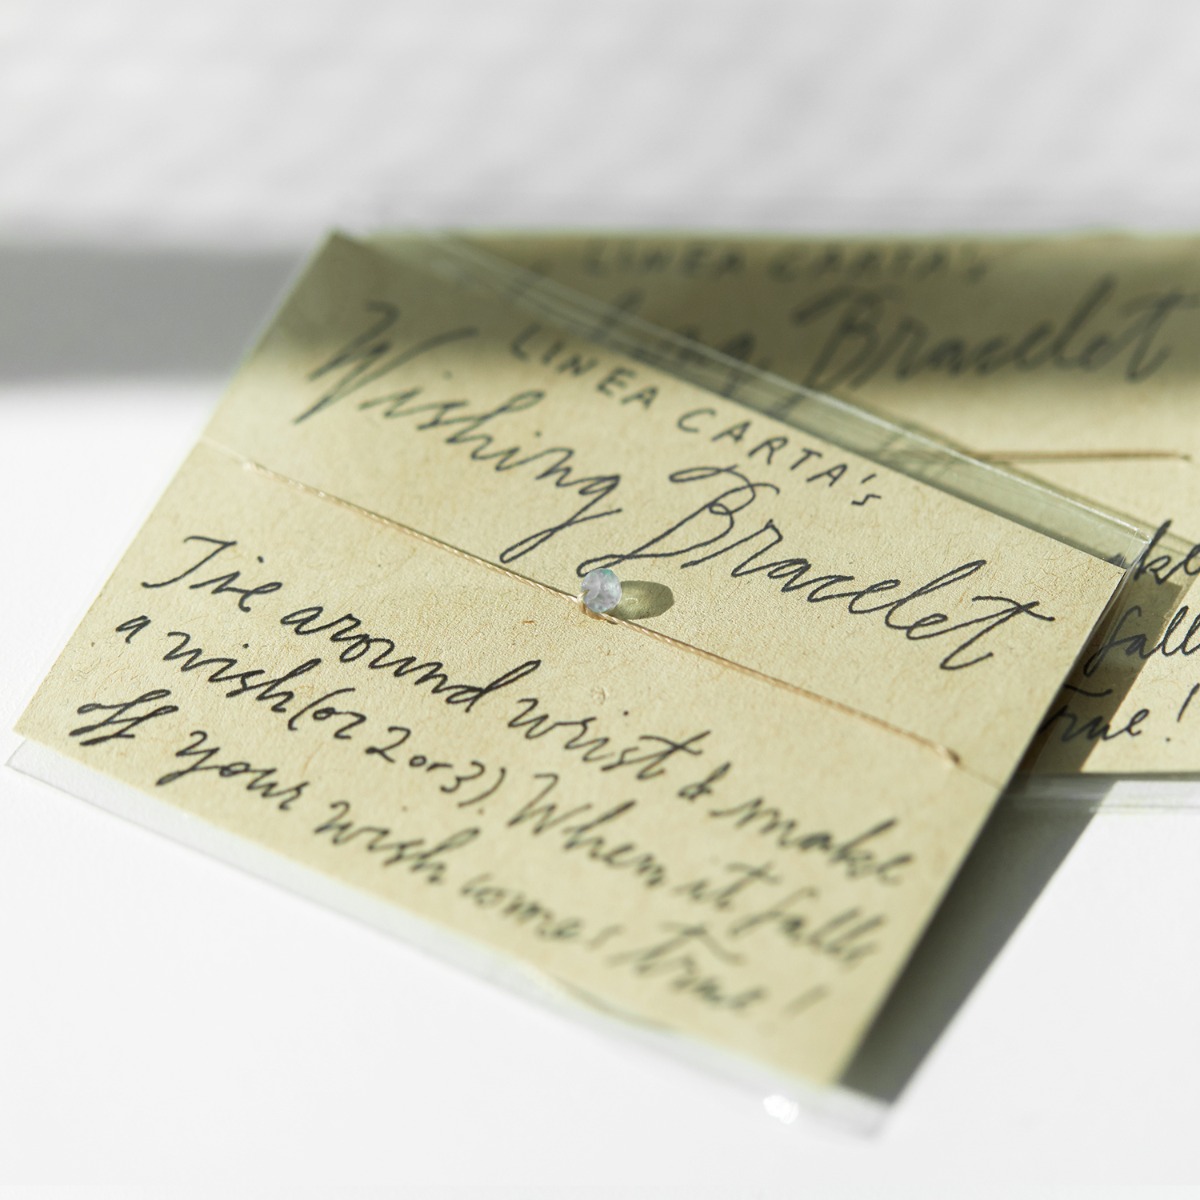 LINEA CARTA's
Wishing Bracelet
Tie around wrist & make
a wish (or 2 or 3). When it falls
off your wish comes true!
LINEA CARTA's
Bracelet
fall
true!